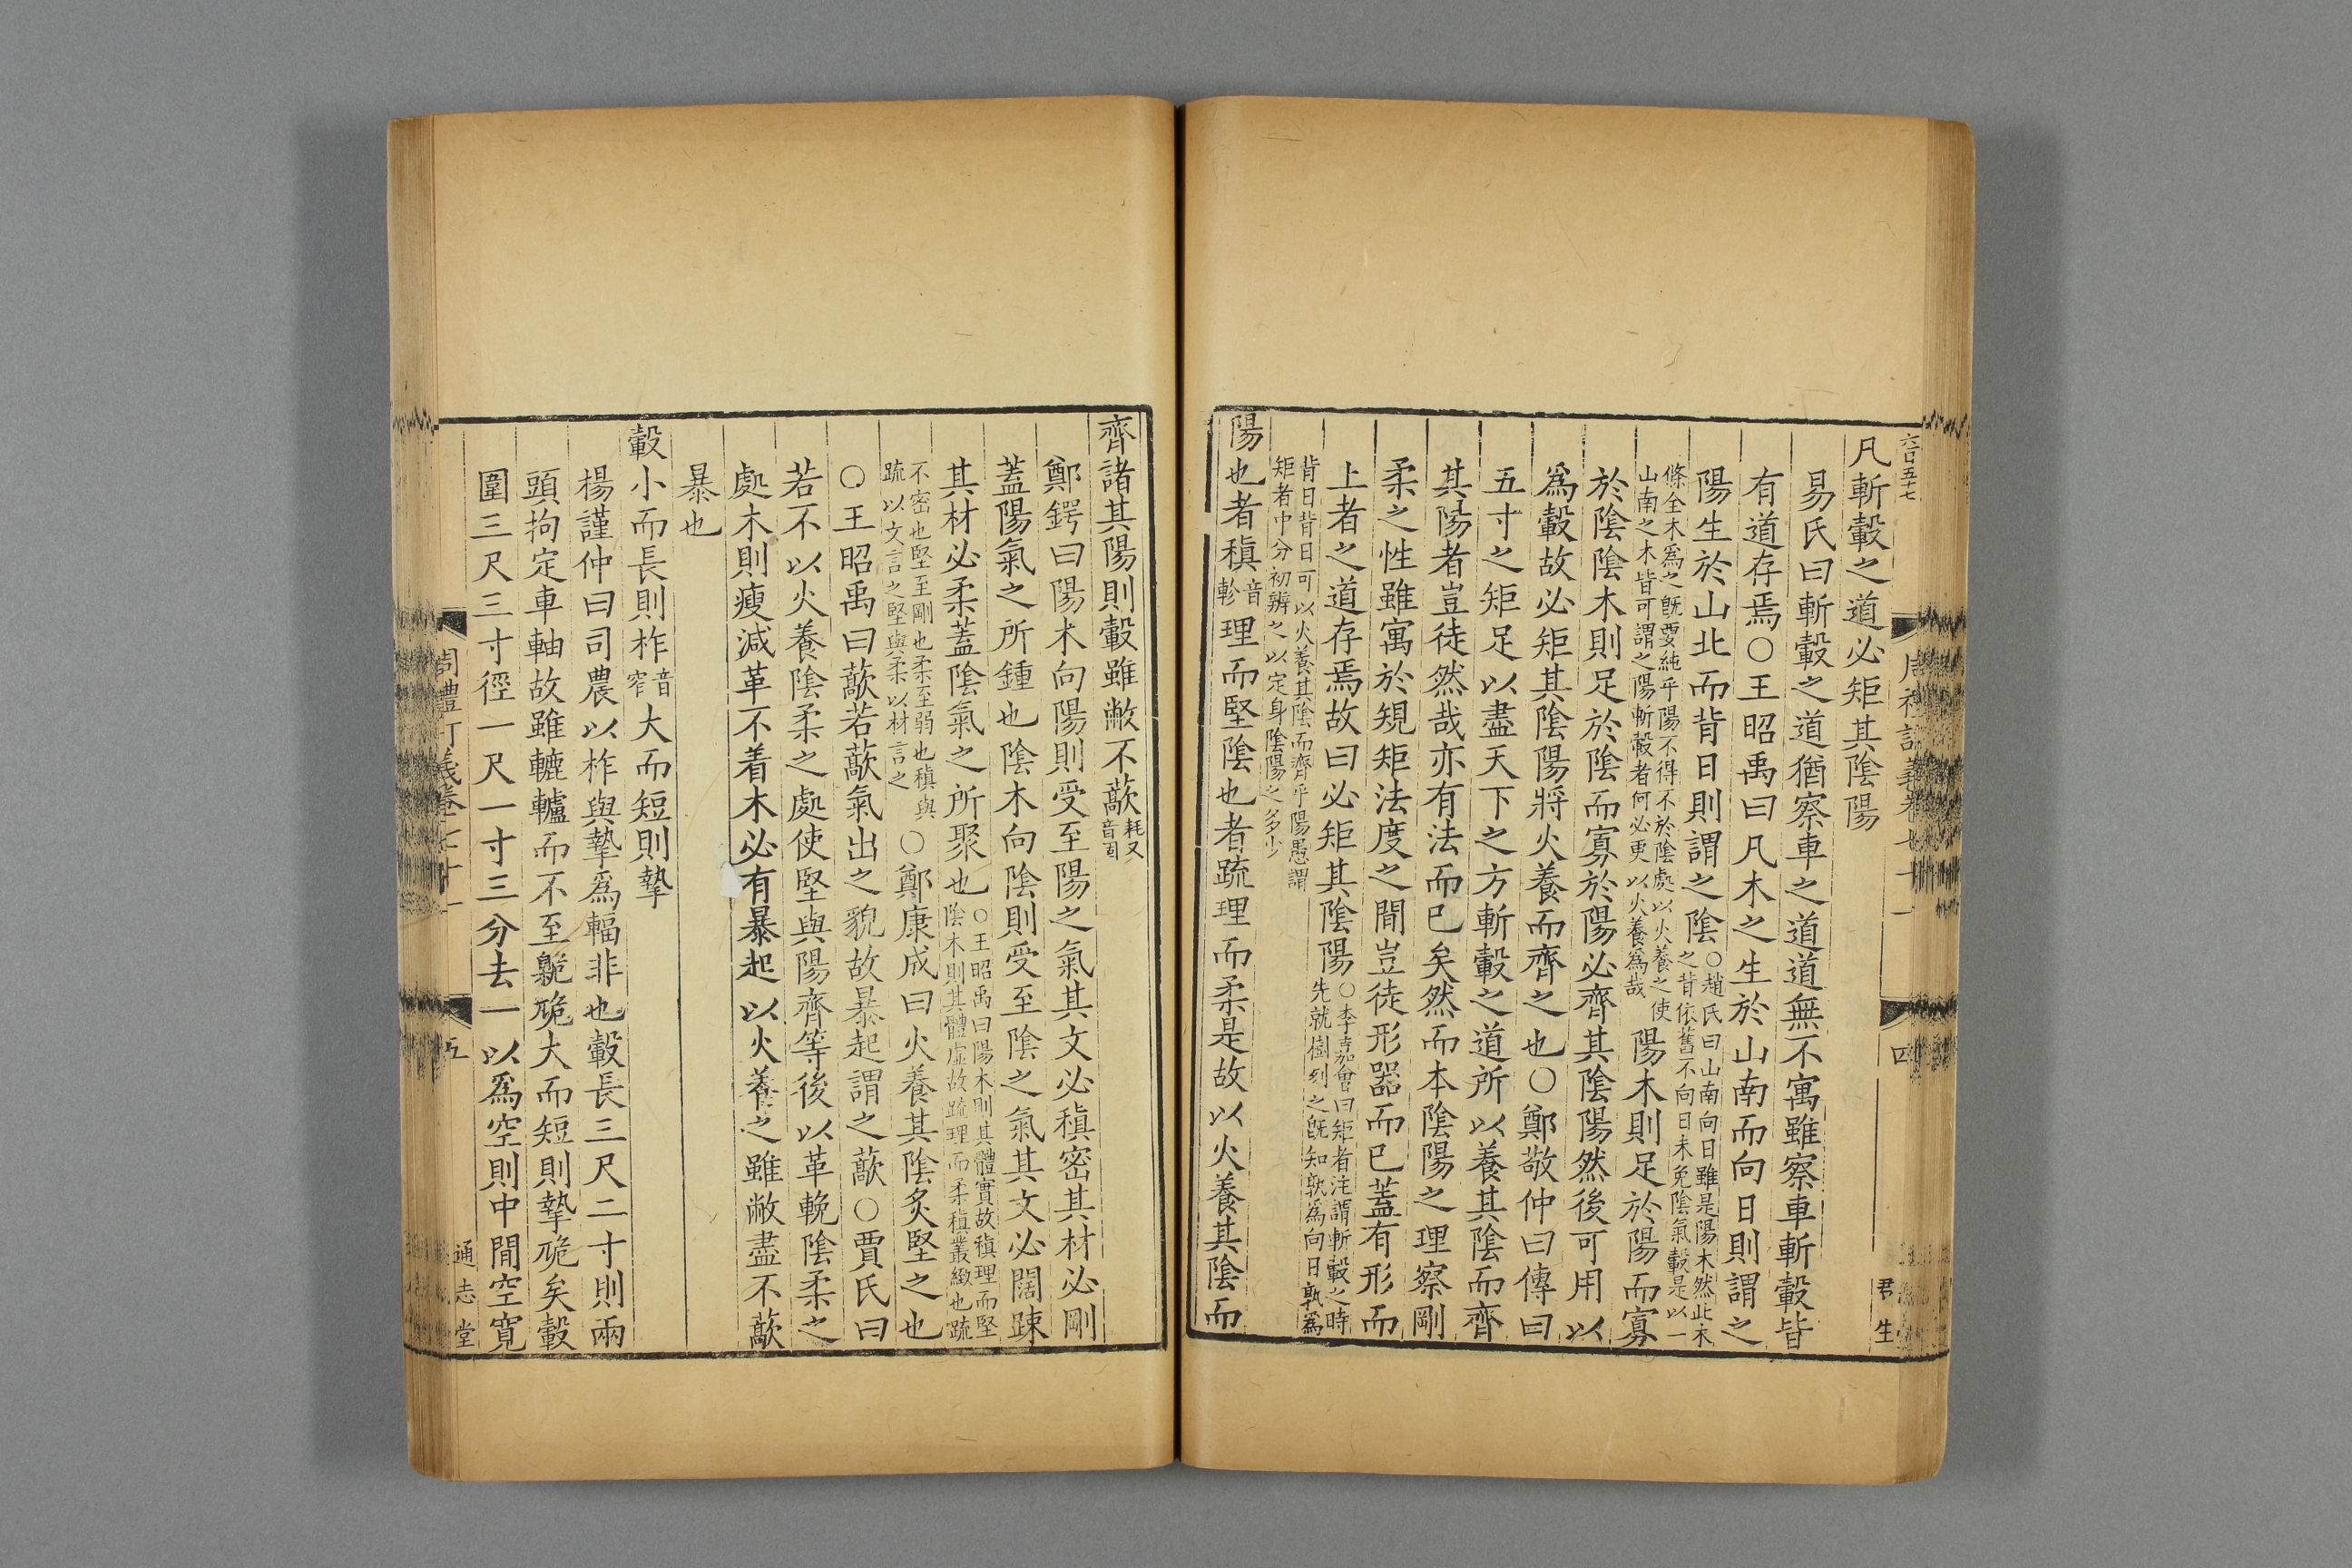 六百五十七
凡斬轂之道必矩其陰陽
易氏曰斬轂之道猶察車之道道無不寓雖察車斬轂皆
有道存焉○王昭禹曰凡木之生於山南而向日則謂之
陽生於山北而背日則謂之陰○趙氏曰山南向日雖是陽木然此木之背依舊不向日未免陰氣轂是以一
條全木爲之旣要純乎陽不得不於陰處以火養之使山南之木皆可謂之陽斬轂者何必更以火養爲哉陽木則足於陽而寡
於陰陰木則足於陰而寡於陽必齊其陰陽然後可用以
爲轂故必矩其陰陽將火養而齊之也○鄭敬仲曰傳曰
五寸之矩足以盡天下之方斬轂之道所以養其陰而齊
其陽者豈徒然哉亦有法而已矣然而本陰陽之理察剛
柔之性雖寓於規矩法度之間豈徒形器而已蓋有形而
上者之道存焉故曰必矩其陰陽○李嘉會曰矩者注謂斬轂之時先就樹刻之旣知孰爲向日孰爲
背日背日可以火養其陰而齊乎陽愚謂矩者中分初辨之以定身陰陽之多少
陽也者稹音軫理而堅陰也者疏理而柔是故以火養其陰而
周禮訂義卷七十一
四
君生
齊諸其陽則轂雖敝不藃耗又音
鄭鍔曰陽木向陽則受至陽之氣其文必稹密其材必剛
蓋陽氣之所鍾也陰木向陰則受至陰之氣其文必闊踈
其材必柔蓋陰氣之所聚也○王昭禹曰陽木則其體實故稹理而堅陰木則其體虛故疏理而柔稹叢緻也疏
不密也堅至剛也柔至弱也稹與疏以文言之堅與柔以材言之○鄭康成曰火養其陰炙堅之也
○王昭禹曰藃若藃氣出之貌故暴起謂之藃○賈氏曰
若不以火養陰柔之處使堅與陽齊等後以革輓陰柔之
處木則瘦減革不着木必有暴起以火養之雖敝盡不藃
暴也
轂小而長則柞音窄大而短則摯
楊謹仲曰司農以柞與摯爲輻非也轂長三尺二寸則兩
頭拘定車軸故雖轆轤而不至臲卼大而短則摯卼矣轂
圍三尺三寸徑一尺一寸三分去一以爲空則中間空寬
周禮訂義卷七十一
五
通志堂